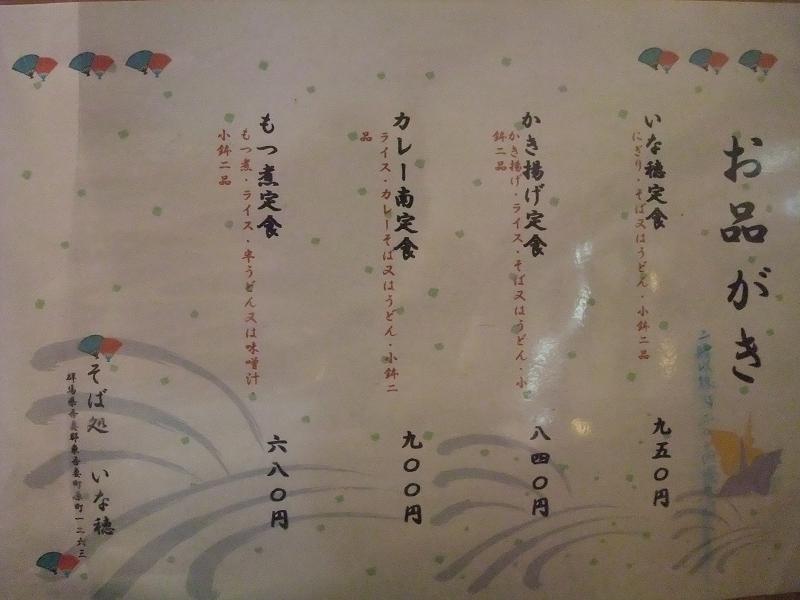 お品がき
いな穂定食
にぎり・そば又はうどん・小鉢二品
九五〇円
かき揚げ定食
かき揚げ・ライス・そば又はうどん・小
鉢二品
八四〇円
カレー南定食
ライス・カレーそば又はうどん・小鉢二
品
九〇〇円
もつ煮定食
もつ煮・ライス・半うどん又は味噌汁
小鉢二品
六八〇円
そば処 いな穂
群馬県吾妻郡東吾妻町原町一二六三